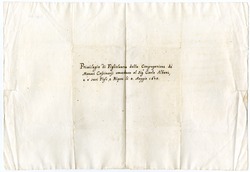 Privilegio di Figliolanza della Congregazione de
Monaci Cassinensi concesso al Sig. Carlo Albani,
e a suoi Figli, e Nipoti li 2 Maggio 1620.